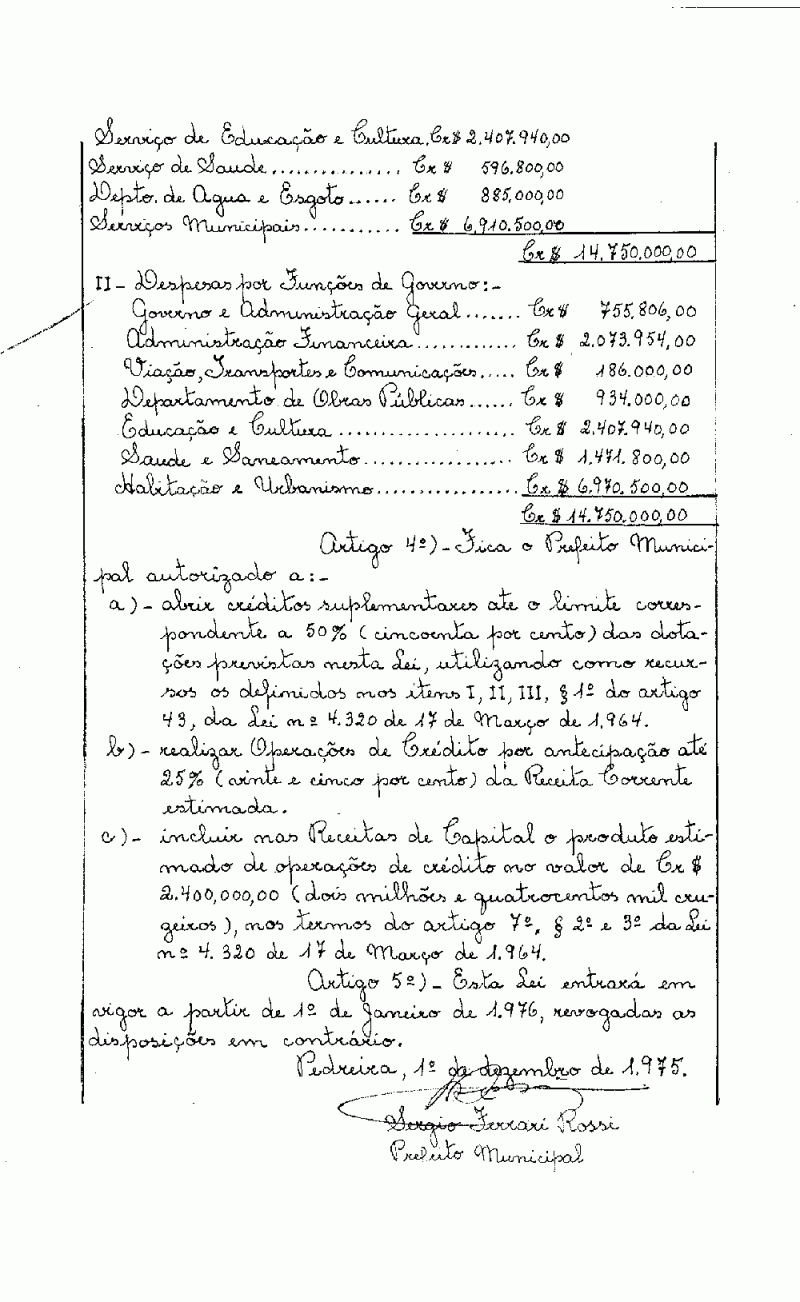 Serviço de Educação e Cultura. Cr$ 2.407.940,00
Serviço de Saude............... Cr$ 596.800,00
Depto. de Agua e Esgoto...... Cr$ 885.000,00
Serviços Municipais........... Cr$ 6.910.500,00
Cr$ 14.750.000,00
II - Despesas por Funções de Governo:-
Governo e Administração Geral....... Cr$ 755.806,00
Administração Financeira............. Cr$ 2.073.954,00
Viação, Transportes e Comunicações..... Cr$ 186.000,00
Departamento de Obras Públicas...... Cr$ 934.000,00
Educação e Cultura...................... Cr$ 2.407.940,00
Saude e Saneamento.................. Cr$ 1.471.800,00
Habitação e Urbanismo................. Cr$ 6.970.500,00
Cr$ 14.750.000,00
Artigo 4º)- Fica o Prefeito Munici-
pal autorizado a:-
a)- abrir créditos suplementares ate o limite corres-
pondente a 50% (cincoenta por cento) das dota-
ções previstas nesta Lei, utilizando como recur-
sos os definidos nos itens I, II, III, § 1º do artigo
43, da Lei nº 4.320 de 17 de Março de 1.964.
b)- realizar Operações de Crédito por antecipação até
25% (vinte e cinco por cento) da Receita Corrente
estimada.
c)- incluir nas Receitas de Capital o produto esti-
mado de operações de crédito no valor de Cr$
2.400,000,00 (dois milhões e quatrocentos mil cru-
zeiros), nos termos do artigo 7º, § 2º e 3º da Lei
nº 4.320 de 17 de Março de 1.964.
Artigo 5º)- Esta Lei entrará em
vigor a partir de 1º de Janeiro de 1.976, revogadas as
disposições em contrário.
Pedreira, 1º de dezembro de 1.975.
Sergio Ferrari Rossi
Prefeito Municipal